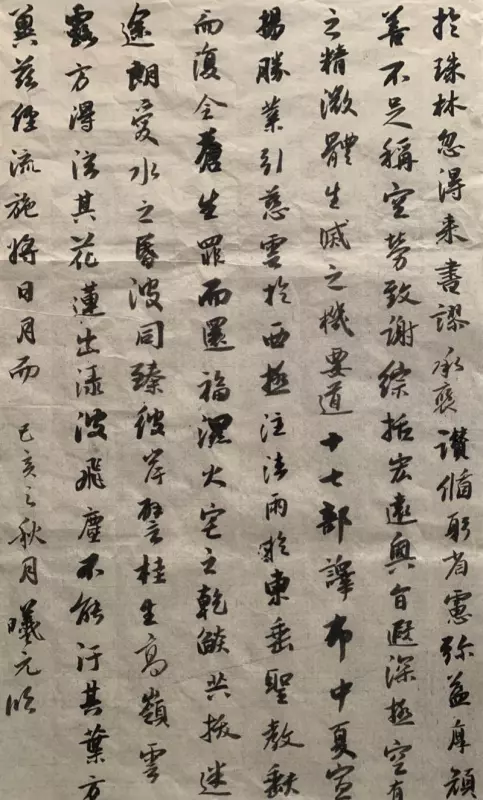 於珠林忽得来書謬承褒讚循躬省慮弥益厚顔
善不足稱空勞致謝綜括宏遠奥旨遐深極空有
之精微體生滅之機要道十七部譯布中夏宣
揚勝業引慈雲於西極注法雨於東垂聖教缺
而復全蒼生罪而還福濕火宅之乾燄共拔迷
途朗愛水之昏波同臻彼岸譬桂生高嶺雲
露方得泫其花蓮出渌波飛塵不能汙其葉方
冀兹經流施將日月而 己亥之秋月曦元临